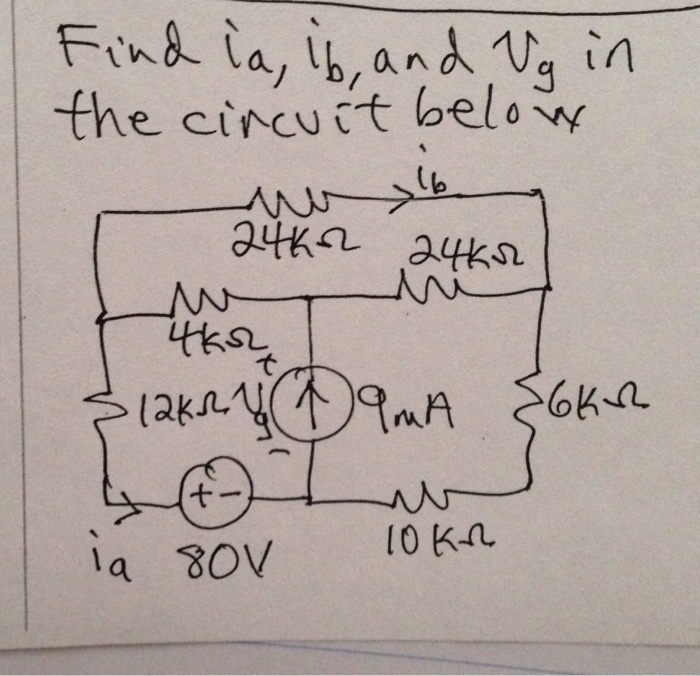 Find ia, ib, and Vg in
the circuit below
ib
24KΩ
24KΩ
4KΩ
12KΩ
+
Vg
-
9mA
6KΩ
+ -
10 KΩ
ia
80V